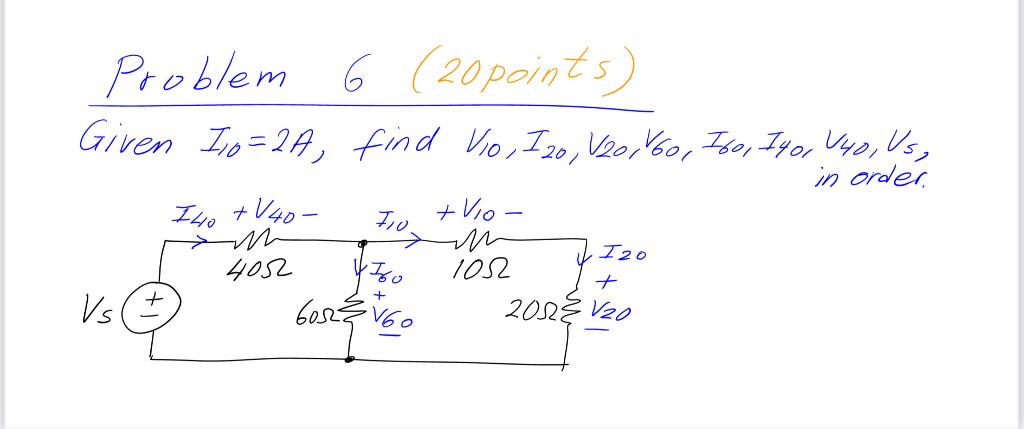 Problem 6 (20points)
Given I10=2A, find V10, I20, V20, V60, I60, I40, V40, Vs,
in order.
I40 + V40 - I10 + V10 -
40Ω I60 10Ω I20
Vs + - 60Ω + V60 - 20Ω + V20 -